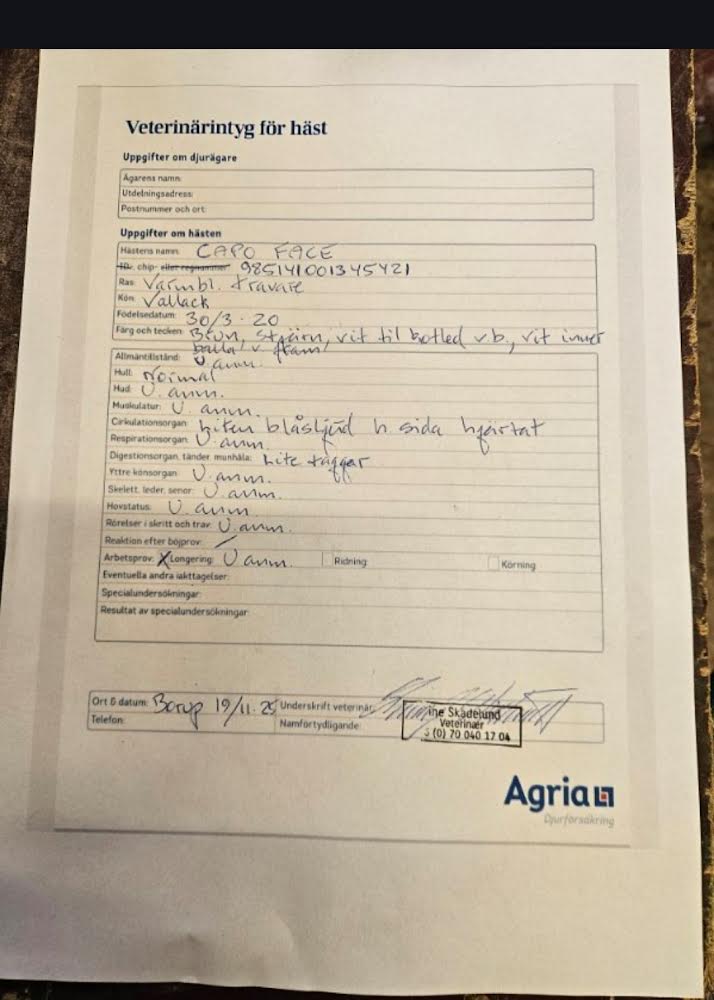 Veterinärintyg för häst
Uppgifter om djurägare
Ägarens namn:
Utdelningsadress:
Postnummer och ort:
Uppgifter om hästen
Hästens namn: CAPO FACE
ID-, chip- eller regnummer: 985141001345421
Ras: Varmbl. travare
Kön: Vallack
Födelsedatum: 30/3-20
Färg och tecken: Brun, stjärn, vit til kotled v.b., vit inner
balla v fram
Allmäntillstånd: U.anm.
Hull: Normal
Hud: U.anm.
Muskulatur: U.anm.
Cirkulationsorgan: Liten blåsljud h sida hjärtat
Respirationsorgan: U.anm.
Digestionsorgan, tänder, munhåla: Lite taggar
Yttre könsorgan: U.anm.
Skelett, leder, senor: U.anm.
Hovstatus: U.anm.
Rörelser i skritt och trav: U.anm.
Reaktion efter böjprov: /
Arbetsprov: X Longering: U anm. Ridning: Körning
Eventuella andra iakttagelser:
Specialundersökningar:
Resultat av specialundersökningar:
Ort & datum: Borup 19/11-25 Underskrift veterinär:
Telefon: Namnförtydligande:
ine Skadelund
Veterinær
(0) 70 040 17 04
Agria
Djurförsäkring